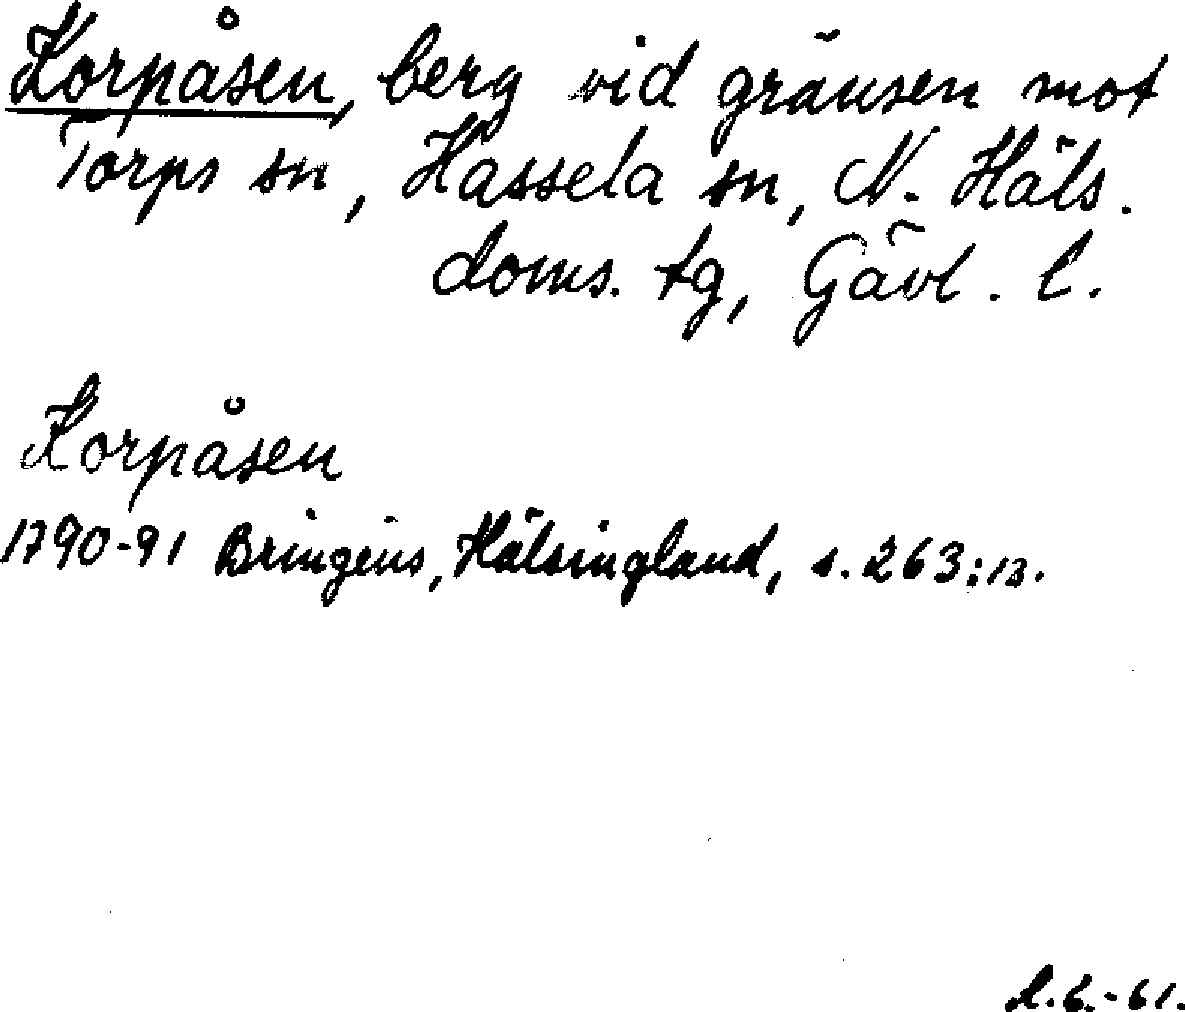 Korpåsen, berg vid gränsen mot
Torps sn, Hassela sn, N. Häls.
doms. tg, Gävl. l.
Korpåsen
1790-91 Bringéus, Hälsingland, s. 263:13.